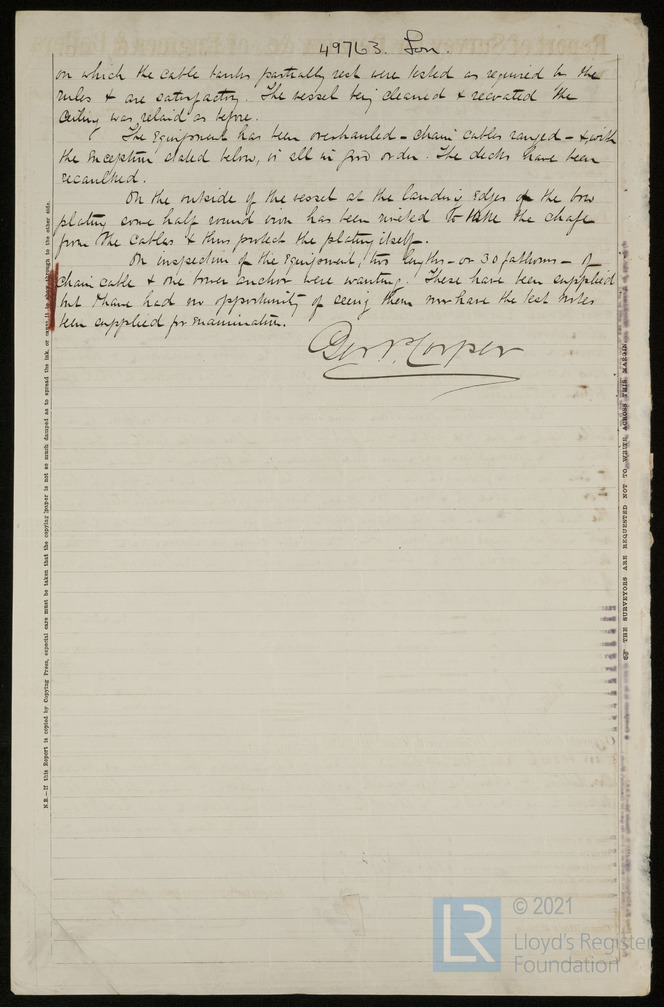 49763. Lon.
on which the cable tanks partially rest were tested as required by the
rules & are satisfactory. The vessel being cleaned & recoated the
ceiling was relaid as before.
The equipment has been overhauled - chain cables ranged - & with
the exception stated below, is all in good order. The decks have been
recaulked.
On the outside of the vessel at the landing edges of the bow
plating some half round iron has been riveted to take the chafe
from the cables & thus protect the plating itself.
On inspection of the equipment, two lengths - or 30 fathoms - of
chain cable & one bower anchor were wanting. These have been supplied
but I have had no opportunity of seeing them nor have the test notes
been supplied for examination.
N.B.—If this Report is copied by Copying Press, especial care must be taken that the copying paper is not so much damped as to spread the ink, or cause it to show through to the other side.
THE SURVEYORS ARE REQUESTED NOT TO WRITE ACROSS THIS MARGIN
LR
© 2021
Lloyd's Register
Foundation